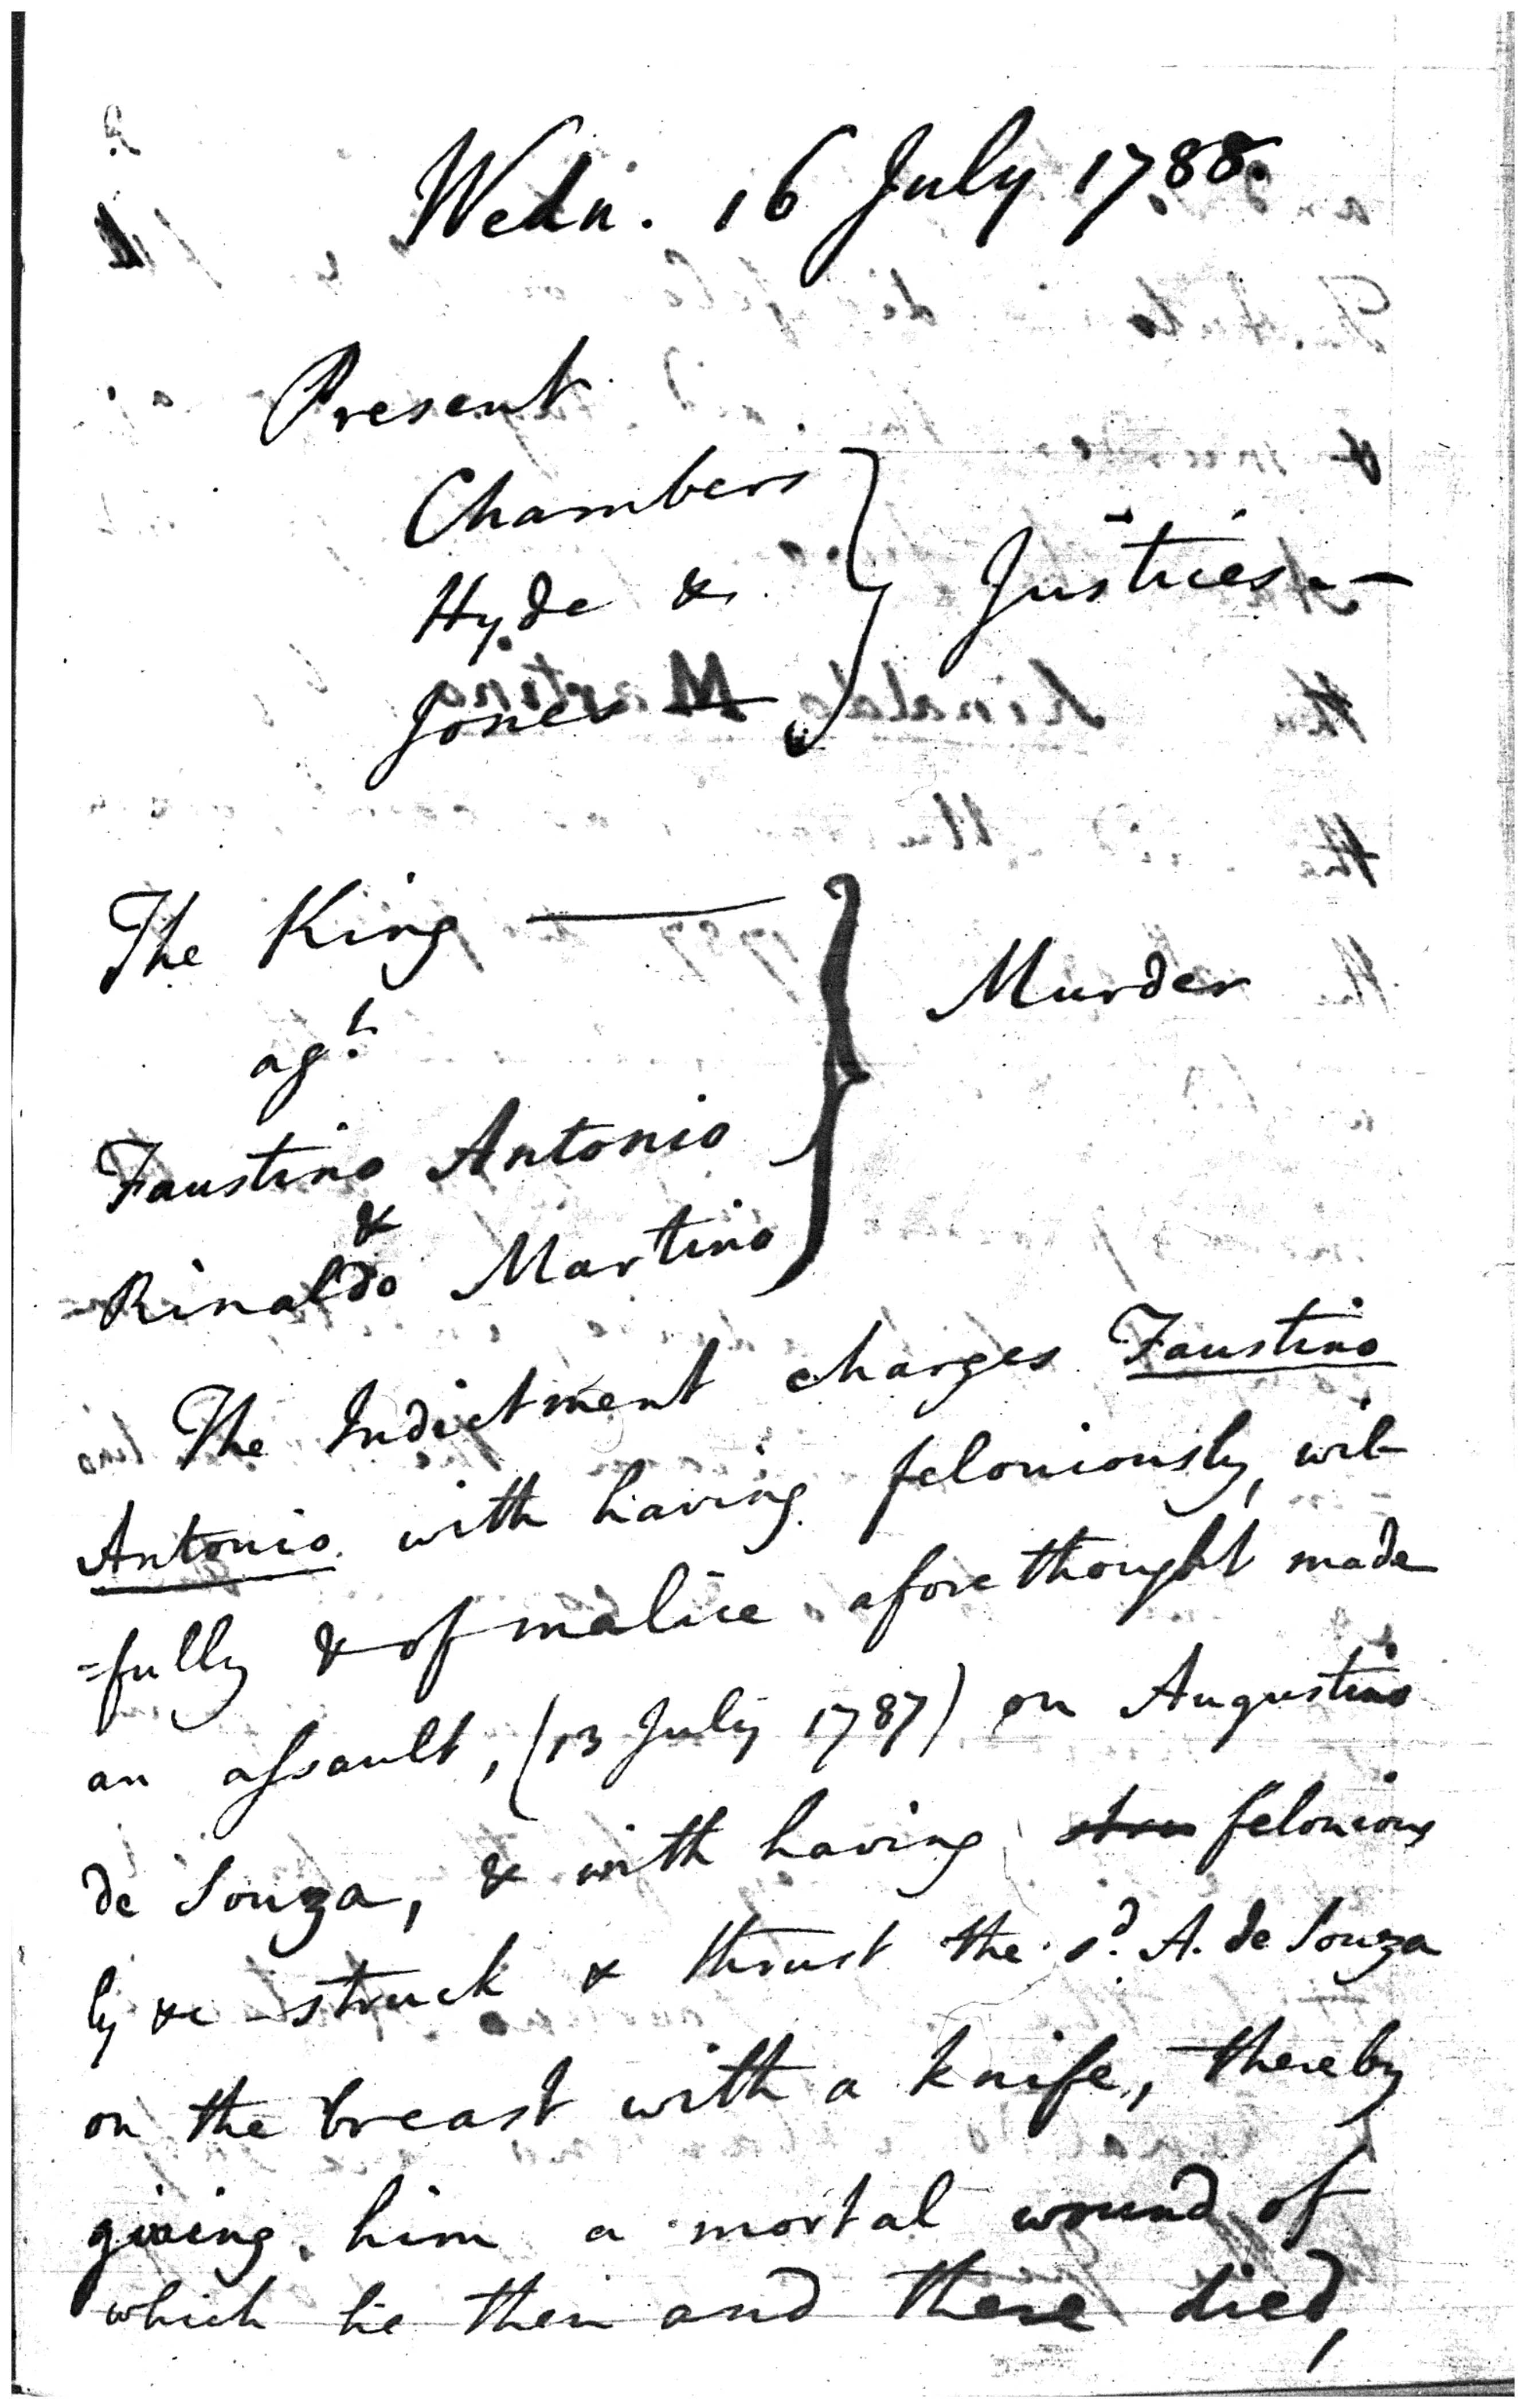 Wedn. 16 July 1788.
Present
Chambers
Hyde &
Jones
} Justices.—
The King ——
agt.
Faustino Antonio
&
Rinaldo Martino
} Murder
The Indictment charges Faustino
Antonio with having feloniously, wil-
=fully & of malice afore thought made
an assault, (13 July 1787) on Augustino
de Souza, & with having felonious
ly &c struck & thrust the sd. A. de Souza
on the breast with a knife, thereby
giving him a mortal wound of
which he then and there died,